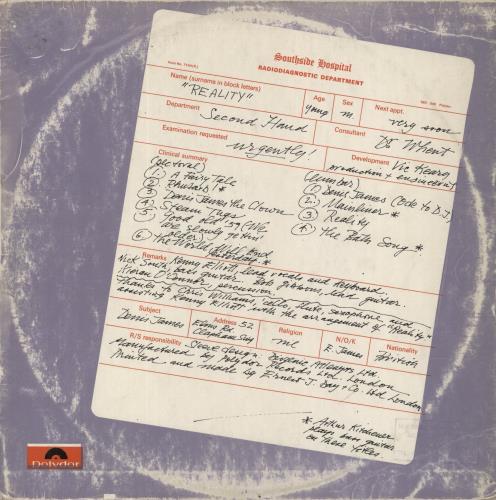 Southside Hospital
RADIODIAGNOSTIC DEPARTMENT
Name (surname in block letters)
"REALITY"
Age
young
Sex
m.
Next appt.
very soon
Department
Second Hand
Consultant
Dr Whent
Examination requested
urgently!
Clinical summary
(pictorial)
1. A Fairy Tale
2. Rhubarb! *
3. Denis James the Clown
4. Steam Tugs
5 Good old '59 (We
are slowly gettin'
older)
6. The World Will End
Yesterday *
Development
Vic Keary
production + engineering
(number)
1 Denis James (Ode to D.J.)
2. Mainliner *
3. Reality
4. The Bath Song *
Remarks Kenny Elliott, lead vocals and keyboard.
Nick South, bass guitar. Bob Gibbons, lead guitar.
Kieran O'Connor percussion.
Thanks to Chris Williams, 'cello, flute, saxophone and
assisting Kenny Elliott with the arrangement of "Reality"
Subject
Denis James
Address 52
Elms Rd
Clapham
Religion
nil
N/O/K
E. James
Nationality
British
R/S responsibility
Manufactured by Polydor Records Ltd. London
Printed and made by Ernest J. Day + Co Ltd London
* Arthur Kitchener
plays bass guitar
on these titles.
Polydor